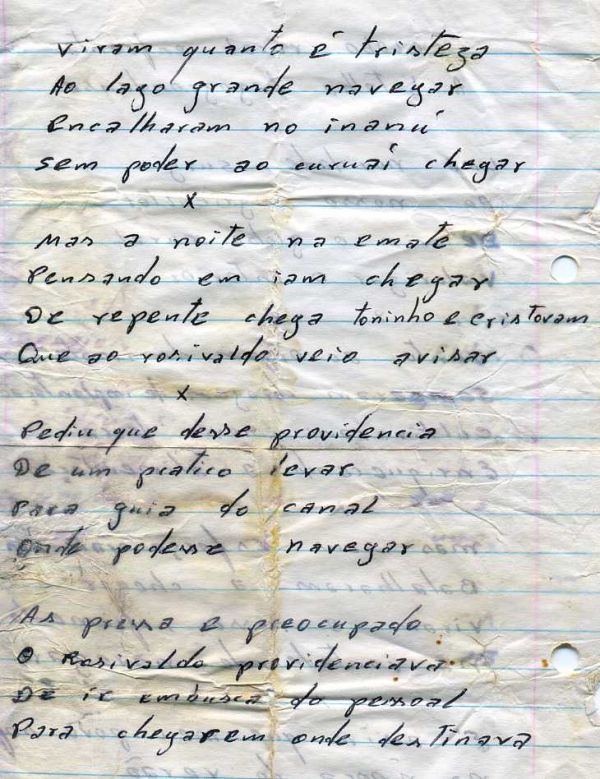 Viram quanto é tristeza
Ao lago grande navegar
Encalharam no inanú
Sem poder ao curuaí chegar
x
Mas a noite na emate
Pensando em iam chegar
De repente chega toninho e cristovam
Que ao rosivaldo veio avisar
x
Pediu que desse providencia
De um pratico levar
Para guia do canal
Onde podesse navegar
As pressa e preocupado
O Rosivaldo providenciava
De ir embusca do pessoal
Para chegarem onde destinava